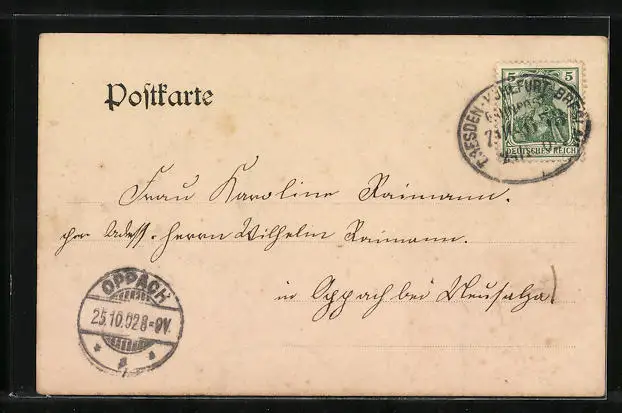 Postkarte
5 5
DEUTSCHES REICH
Frau Karoline Raimann.
per Adess. Herrn Wilhelm Raimann.
in Oppach bei Neusalza.
OPPACH
25.10.02 8-9V.